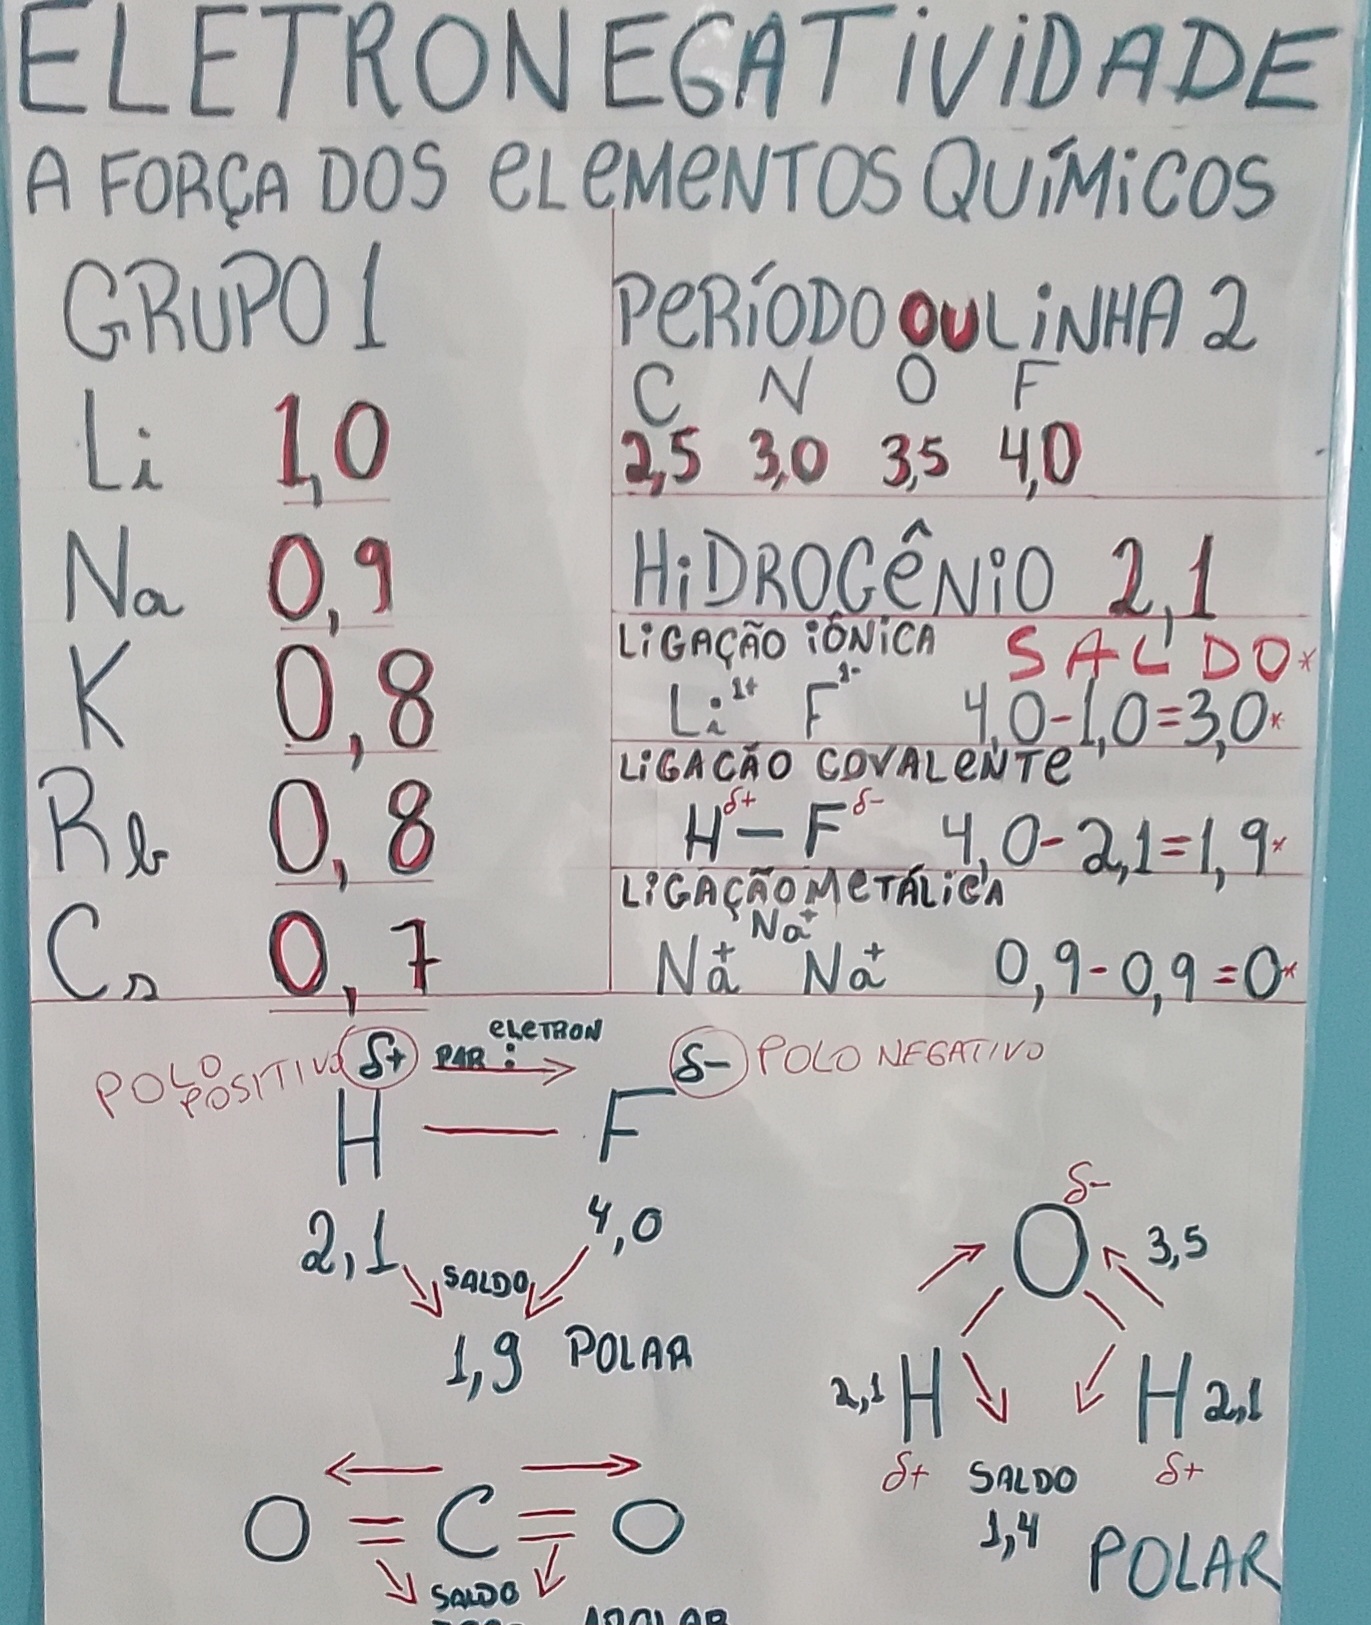 ELETRONEGATIVIDADE
A FORÇA DOS ELEMENTOS QUÍMICOS
GRUPO 1
Li 1,0
Na 0,9
K 0,8
Rb 0,8
Cs 0,7
PERÍODO OU LINHA 2
C N O F
2,5 3,0 3,5 4,0
HIDROGÊNIO 2,1
LIGAÇÃO IÔNICA SALDO*
Li¹⁺ F¹⁻ 4,0-1,0=3,0*
LIGACÃO COVALENTE
H^δ+ — F^δ- 4,0-2,1=1,9*
LIGAÇÃO METÁLICA
Na⁺
Na⁺ Na⁺ 0,9-0,9=0*
POLO POSITIVO δ+ PAR : ELETRON → δ- POLO NEGATIVO
H — F
2,1 4,0
SALDO
1,9 POLAR
δ-
O 3,5
2,1 H H 2,1
δ+ SALDO δ+
1,4
POLAR
O = C = O
SALDO
APOLAR